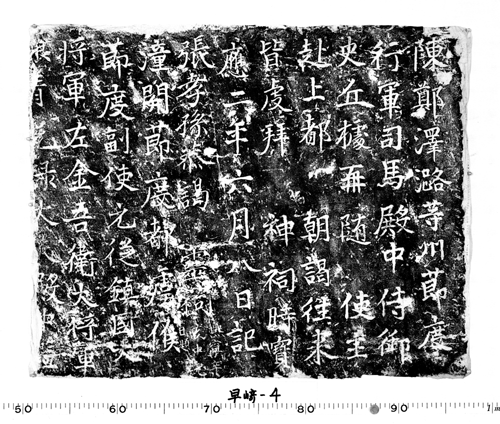 陳鄭澤潞等州節度
行軍司馬殿中侍御
史丘據再随 使主
赴上都 朝謁往来
皆虔拜 神祠時寳
應二年六月八日記
張孝孫恭謁
潼關節度都虞候
節度副使元從鎮國大
将軍左金吾衛大将軍
早崎-4
50 60 70 80 90 1m